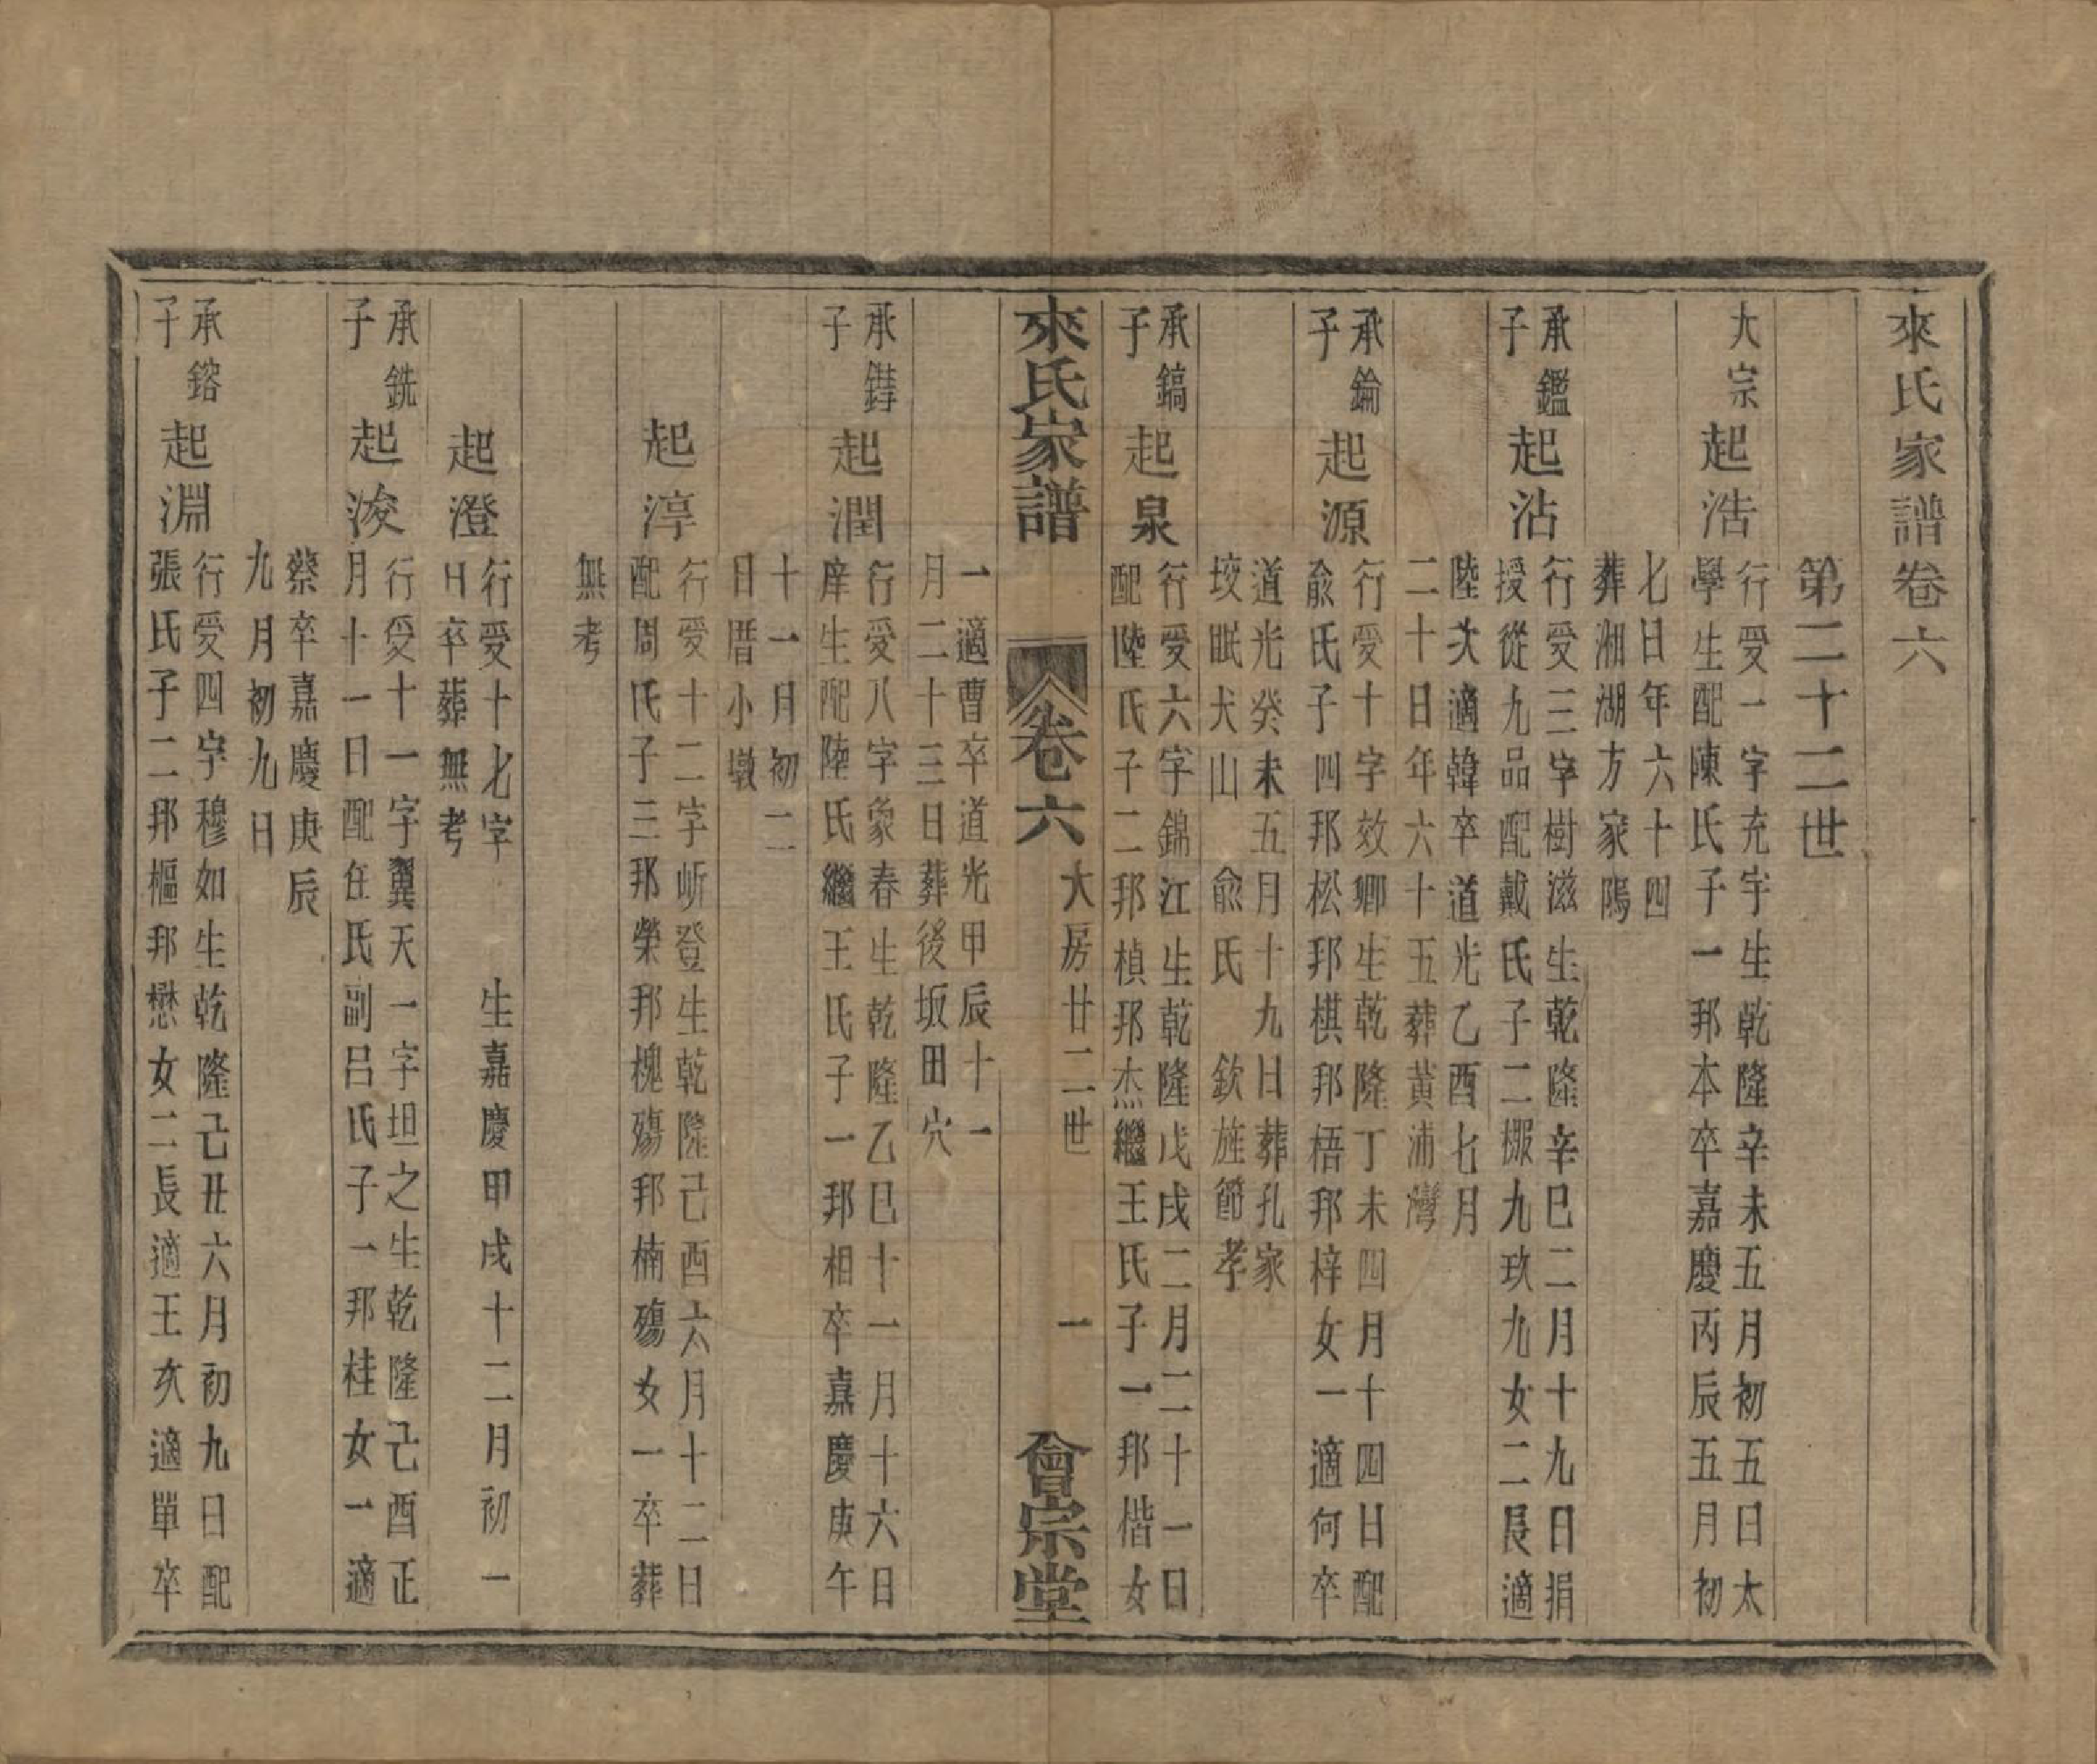 來氏家譜卷六
第二十二世
大宗
起浩
行受一字充宇生乾隆辛未五月初五日太
學生配陳氏子一邦本卒嘉慶丙辰五月初
七日年六十四
葬湘湖方家隝
承鑑
子
起沾
行受三字樹滋生乾隆辛巳二月十九日捐
授從九品配戴氏子二棷九玖九女二長適
陸次適韓卒道光乙酉七月
二十日年六十五葬黃浦灣
承錀
子
起源
行受十字效卿生乾隆丁未四月十四日配
兪氏子四邦松邦棋邦梧邦梓女一適何卒
道光癸未五月十九日葬孔家
垵眠犬山　兪氏　欽旌節孝
承鎬
子
起泉
行受六字錦江生乾隆戊戌二月二十一日
配陸氏子二邦楨邦杰繼王氏子一邦楷女
來氏家譜
卷六
大房廿二世
一
會宗堂
一適曹卒道光甲辰十一
月二十三日葬後坂田穴
承鑄
子
起潤
行受八字象春生乾隆乙巳十一月十六日
庠生配陸氏繼王氏子一邦相卒嘉慶庚午
十一月初二
日厝小墩
起淳
行受十二字岓登生乾隆己酉六月十二日
配周氏子三邦榮邦槐殤邦楠殤女一卒葬
無考
起澄
行受十七字　　生嘉慶甲戌十二月初一
日卒葬無考
承銑
子
起浚
行受十一字翼天一字坦之生乾隆己酉正
月十一日配任氏副呂氏子一邦桂女一適
蔡卒嘉慶庚辰
九月初九日
承鎔
子
起淵
行受四字穆如生乾隆己丑六月初九日配
張氏子二邦樞邦懋女二長適王次適單卒